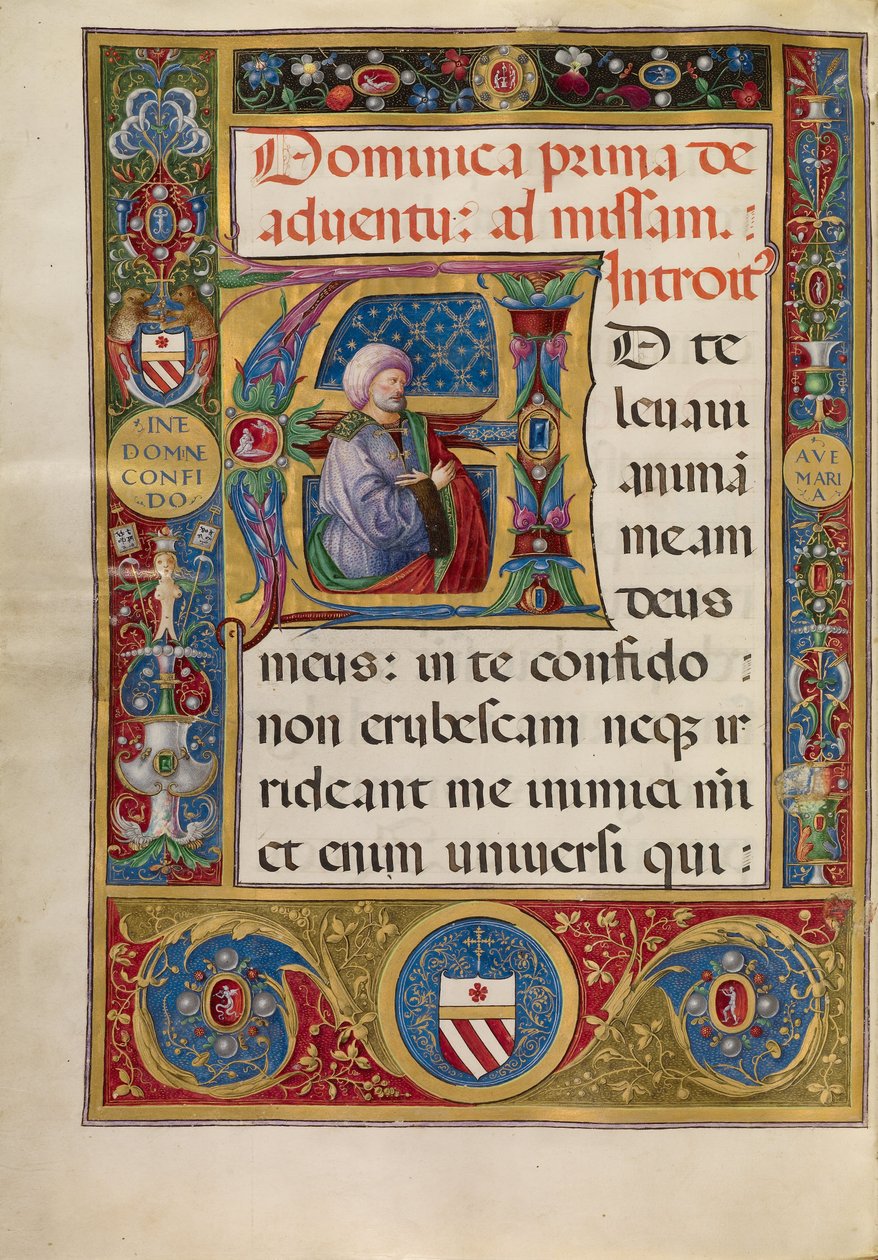 Dominica prima de
adventu: ad missam.
Introit9
D te
levavi
animā
meam
deus
meus: in te confido
non erubescam neqꝫ ir
rideant me inimici mī
et enim universi qui
IN TE
DOMINE
CONFI
DO
AVE
MARI
A